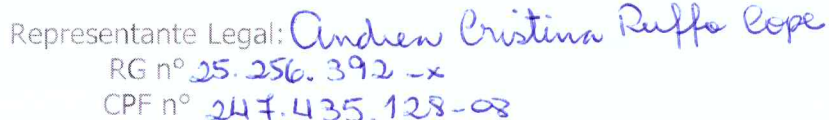 Representante Legal: Andrea Cristina Ruffo Cope
RG nº 25.256.392-x
CPF nº 247.435.128-08